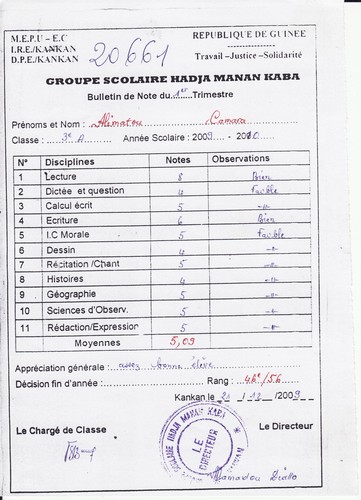 M.E.P.U - E.C
I.R.E./KANKAN
D.P.E./KANKAN
20661
REPUBLIQUE DE GUINEE
Travail –Justice –Solidarité
GROUPE SCOLAIRE HADJA MANAN KABA
Bulletin de Note du 1er Trimestre
Prénoms et Nom : Alimatou Camara
Classe : 3e A Année Scolaire : 2009 - 2010
N° Disciplines Notes Observations
1 Lecture 8 Bien
2 Dictée et question 4 Faible
3 Calcul écrit 5 -"-
4 Ecriture 6 Bien
5 I.C Morale 5 Faible
6 Dessin 4 -"-
7 Récitation /Chant 5 -"-
8 Histoires 4 -"-
9 Géographie 5 -"-
10 Sciences d'Observ. 5 -"-
11 Rédaction/Expression 5 -"-
Moyennes 5,09
Appréciation générale : assez bonne élève
Décision fin d'année : Rang : 46e/56
Kankan le 21 / 12 / 2009
Le Chargé de Classe
Le Directeur
SCOLAIRE HADJA MANAN KABA
LE DIRECTEUR
KANKAN
Mamadou Diallo